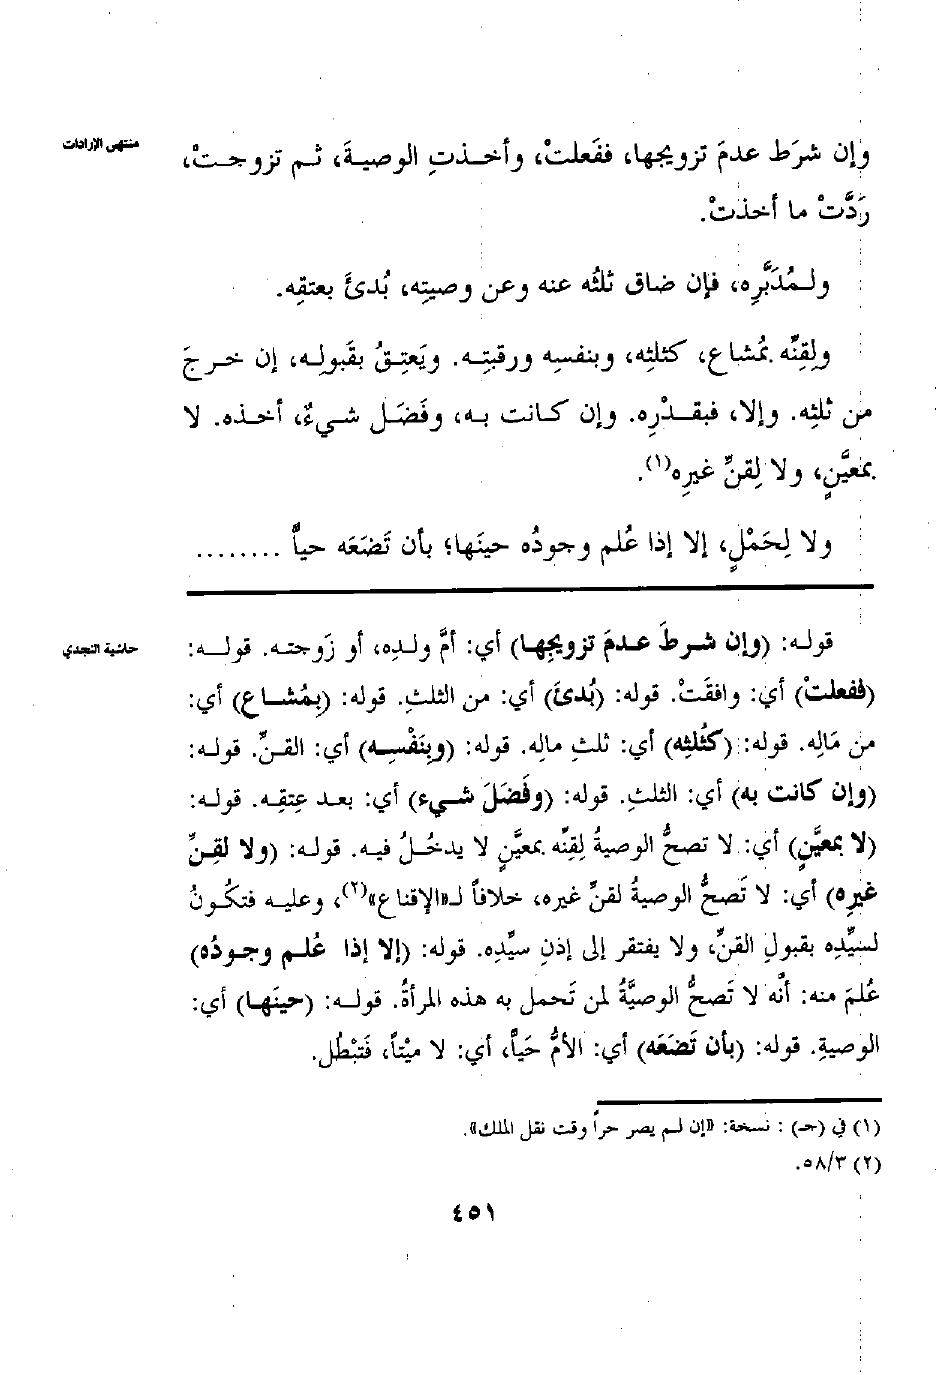 منتهى الإرادات
وإن شرَط عدمَ تزويجها، ففَعلتْ، وأخذتِ الوصيةَ، ثم تزوجتْ،
رَدَّتْ ما أخذتْ.
ولمُدَبَّرِه، فإن ضاق ثلثُه عنه وعن وصيتِه، بُدئَ بعتقِه.
ولِقِنِّه بمُشاع، كثلثِه، وبنفسِه ورقبتِه. ويَعتِقُ بقَبولِه، إن خرجَ
من ثلثِه. وإلا، فبقدْرِه. وإن كانت به، وفَضَل شيءٌ، أخذه. لا
بمعيَّنٍ، ولا لِقنِّ غيرِه(١).
ولا لِحَمْلٍ، إلا إذا عُلم وجودُه حينَها؛ بأن تَضعَه حياًّ ........
حاشية النجدي
قوله: (وإن شرطَ عدمَ تزويجِها) أي: أمَّ ولدِه، أو زَوجته. قوله:
(ففعلتْ) أي: وافقَتْ. قوله: (بُدئَ) أي: من الثلثِ. قوله: (بِمُشاع) أي:
من مَالِه. قوله: (كثُلثِه) أي: ثلثِ مالِه. قوله: (وبِنَفْسِه) أي: القنِّ. قوله:
(وإن كانت به) أي: الثلثِ. قوله: (وفَضَلَ شيء) أي: بعد عِتقِه. قوله:
(لا بمعيَّنٍ) أي: لا تصحُّ الوصيةُ لِقنِّه بمعيَّنٍ لا يدخُلُ فيه. قوله: (ولا لقِنِّ
غيرِه) أي: لا تَصحُّ الوصيةُ لقنِّ غيره، خلافاً لـ«الإقناع»(٢)، وعليه فتكُونُ
لسيِّدِه بقبولِ القنِّ، ولا يفتقر إلى إذنِ سيِّدِه. قوله: (إلا إذا عُلم وجودُه)
عُلمَ منه: أنَّه لا تَصحُّ الوصيَّةُ لمن تَحمل به هذه المرأةُ. قوله: (حينَها) أي:
الوصيةِ. قوله: (بأن تَضَعَه) أي: الأمُّ حَياًّ، أي: لا ميْتاً، فَتبْطُل.
(١) في (جـ) : نسخة: «إن لم يصر حراً وقت نقل الملك».
(٢) ٥٨/٣.
٤٥١